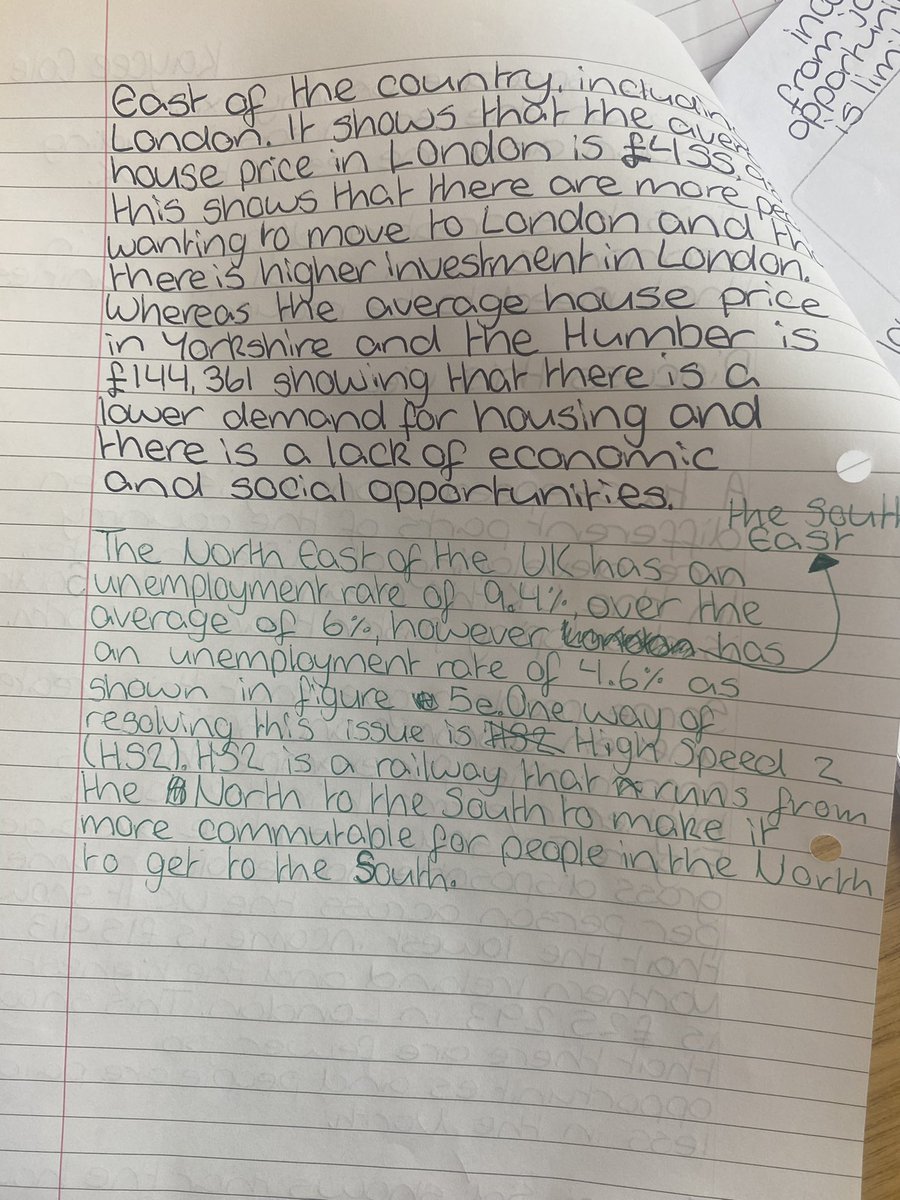 East of the country, including
London. It shows that the
house price in London is
this shows that there are more
wanting to move to London and
there is higher investment in London.
Whereas the average house price
in Yorkshire and the Humber is
£144,361 showing that there is a
lower demand for housing and
there is a lack of economic
and social opportunities.
The North East of the UK has an
unemployment rate of 9.4%, over the
average of 6%, however the South East has
an unemployment rate of 4.6% as
shown in figure 5e. One way of
resolving this issue is High Speed 2
(HS2). HS2 is a railway that runs from
the North to the South to make it
more commutable for people in the North
to get to the South.
from
is